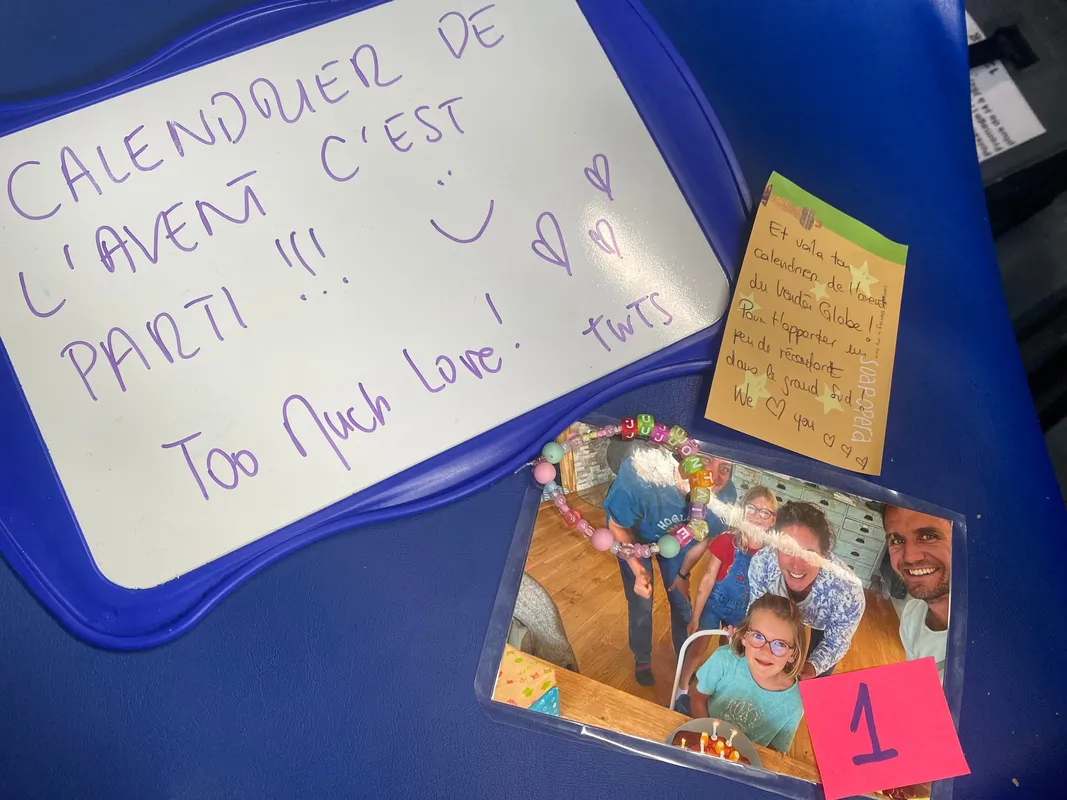 CALENDRIER DE
L'AVENT C'EST
PARTI !!!
Too Much Love !
TWTS
Et voilà ton
calendrier de l'avent
du Vendée Globe !
Pour t'apporter un
peu de réconfort
dans le grand Sud !
We you
SOAP OPERA
1